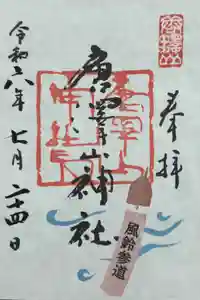 奉拝
唐澤山神社
令和六年七月二十四日
風鈴参道